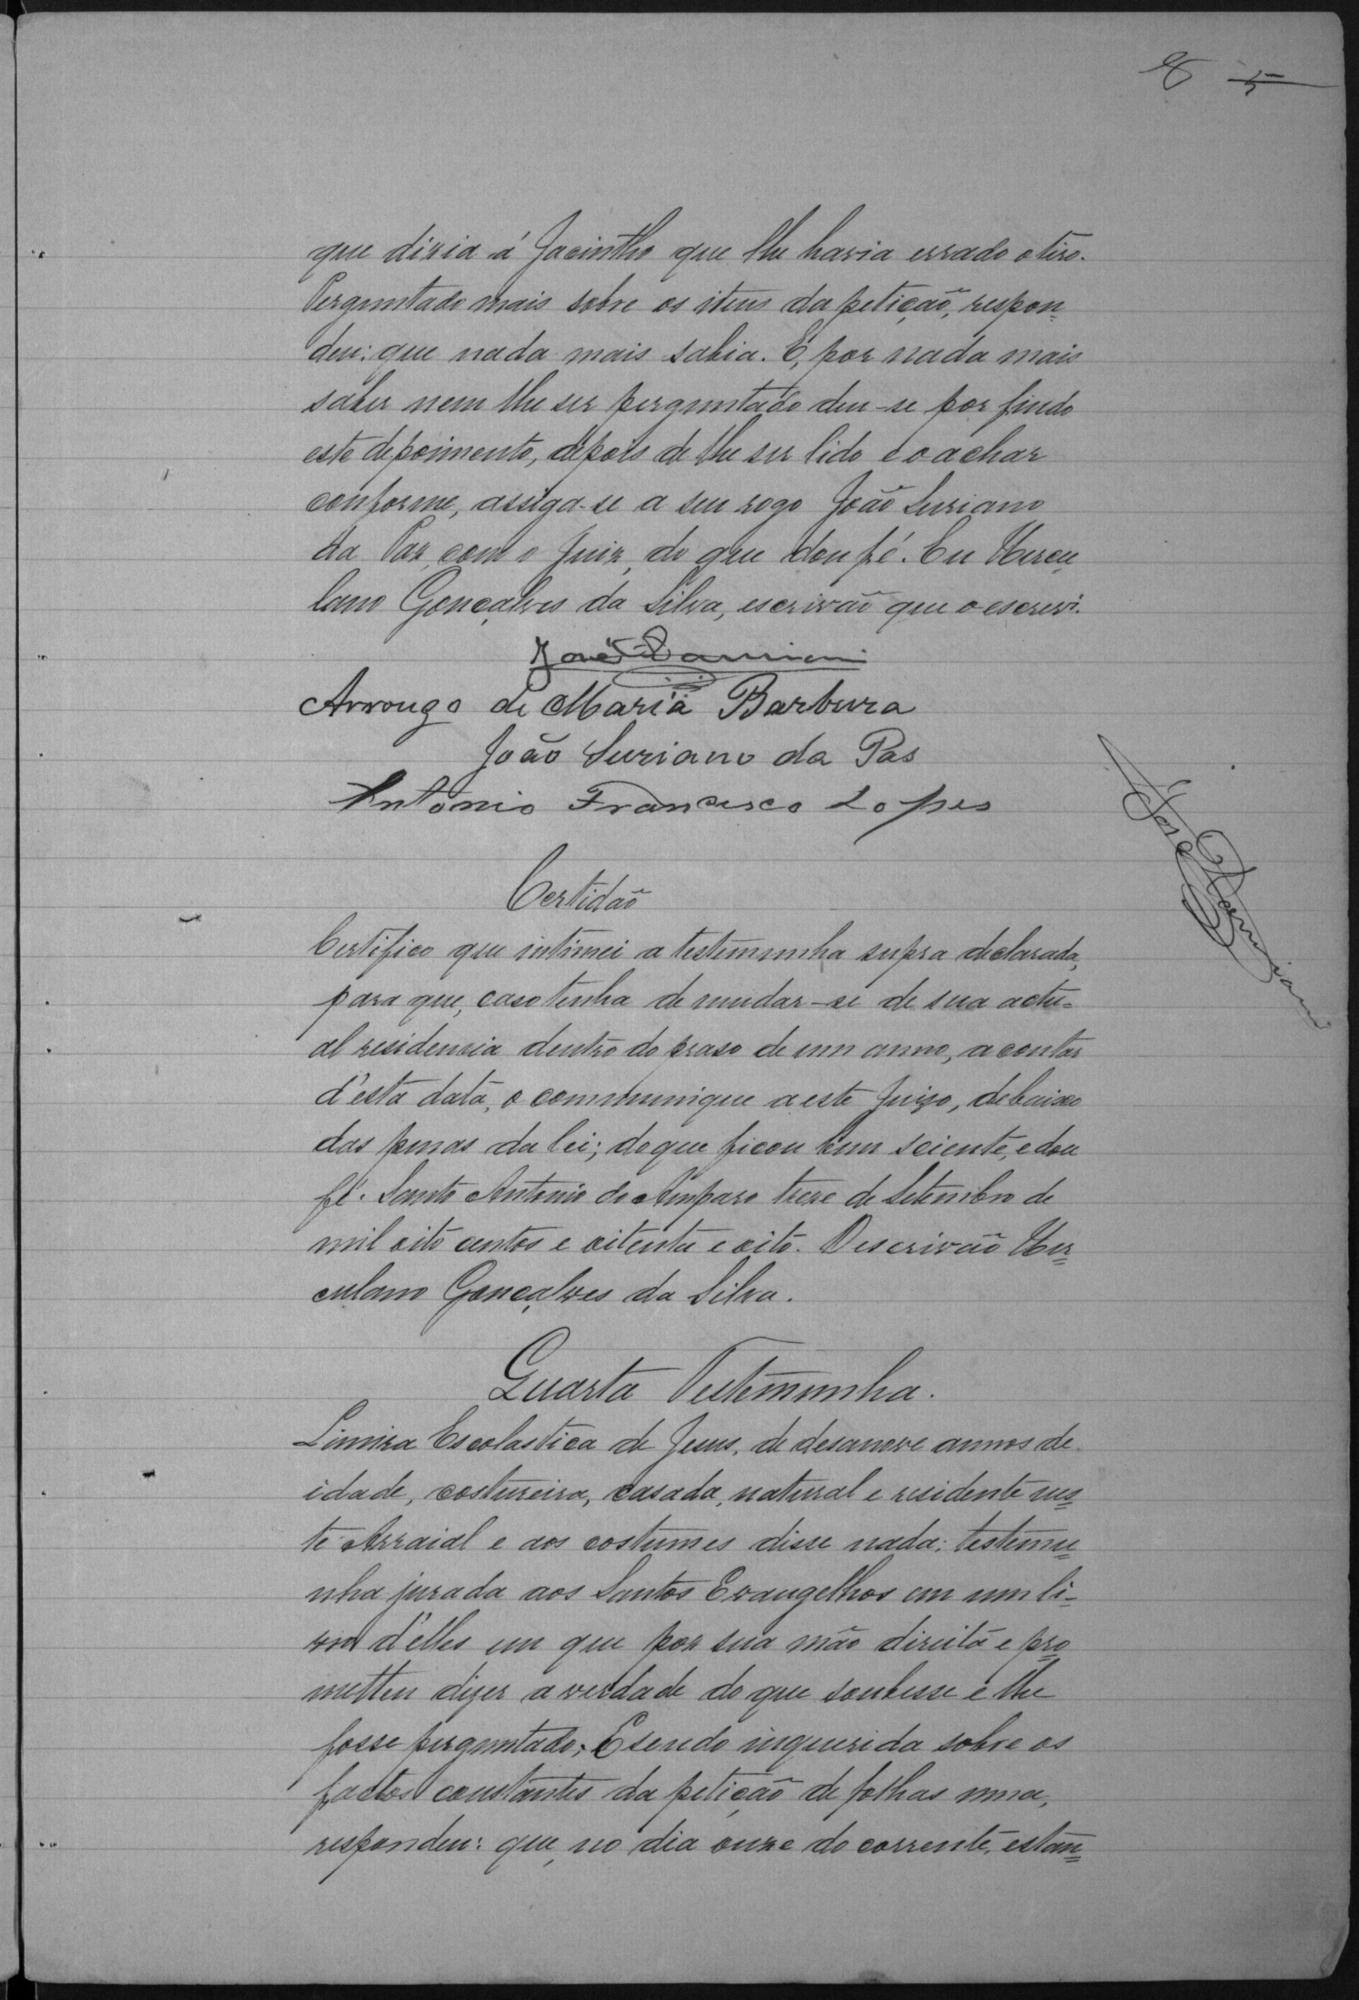 8 5
que dizia á Jacintho que lhe havia errado o tiro.
Perguntado mais sobre os itens da petição, respon-
deu: que nada mais sabia. E, por nada mais
saber nem lhe ser perguntado deu-se por findo
este depoimento, depois de lhe ser lido e o achar
conforme, assiga-se a seu rogo João Suriano
da Paz, com o Juiz, do que dou fé. Eu Hercu-
lano Gonçalves da Silva, escrivão que o escrevi.
José Damiani
Arrougo de Maria Barbura
João Suriano da Pas
Antonio Francisco Lopes
José Damiani
Certidão
Certifico que intimei a testemunha supra declarada,
para que, caso tenha de mudar-se de sua actu-
al residencia dentro do praso de um anno, a contar
d'esta data, o communique a este Juizo, debaixo
das penas da lei; do que ficou bem sciente, e dou
fé. Santo Antonio do Amparo treze de Setembro de
mil oito centos e oitenta e oito. O escrivão Her-
culano Gonçalves da Silva.
Quarta Testemunha.
Escolastica de Jesus, de desanove annos de
idade, costureira, casada, natural e residente nes-
te Arraial e aos costumes disse nada; testemu-
nha jurada aos Santos Evangelhos em um li-
vro d'elles em que por sua mão direita e pro-
metteu dizer a verdade do que soubesse e lhe
fosse perguntado; E sendo inquerida sobre os
factos constantes da petição de folhas uma,
respondeu: que, no dia onze do corrente, estan-